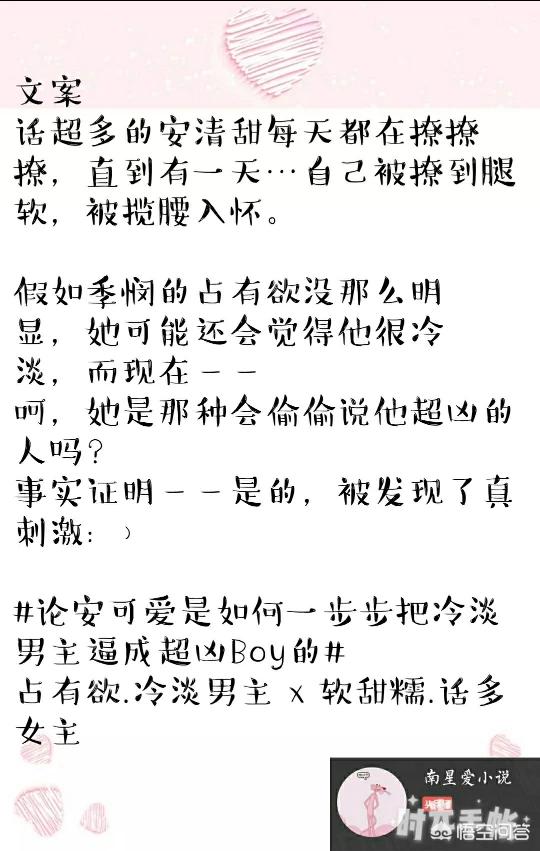 文案
话超多的安清甜每天都在撩撩
撩，直到有一天…自己被撩到腿
软，被揽腰入怀。
假如季悯的占有欲没那么明
显，她可能还会觉得他很冷
淡，而现在——
呵，她是那种会偷偷说他超凶的
人吗？
事实证明——是的，被发现了真
刺激：）
#论安可爱是如何一步步把冷淡
男主逼成超凶Boy的#
占有欲.冷淡男主 x 软甜糯.话多
女主
南星爱小说
时光手帐
悟空问答